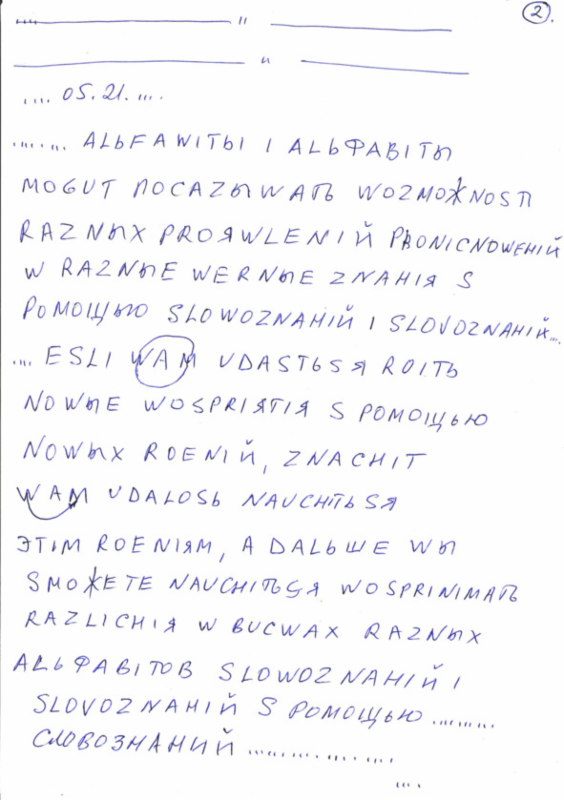 ②.
"
"
.... 05.21. ....
....... ALЬFAWITЫ I ALЬФАВІТЫ
MOGUT ПOCAZЫWATЬ WOZMOЖNOSTI
RAZNЫX PROЯWLENІЙ PRONICNOWEHІЙ
W RAZNЫE WERNЫE ZNAHIЯ S
POMOЩЬЮ SLOWOZNAHІЙ I SLOVOZNAHІЙ...
.... ESLI WAM UDASTЬSЯ ROITЬ
NOWЫE WOSPRIЯTIЯ S POMOЩЬЮ
NOWЫX ROENІЙ, ZNACHIT
WAM UDALOSЬ NAUCHITЬSЯ
ЭTIM ROENIЯM, A DALЬШE WЫ
SMOЖETE NAUCHITЬSЯ WOSPRINIMATЬ
RAZLICHIЯ W BUCWAX RAZNЫX
ALЬФАВІТОВ SLOWOZNAHІЙ I
SLOVOZNAHІЙ S POMOЩЬЮ .........
СЛОВОЗНАНИЙ ...................
....